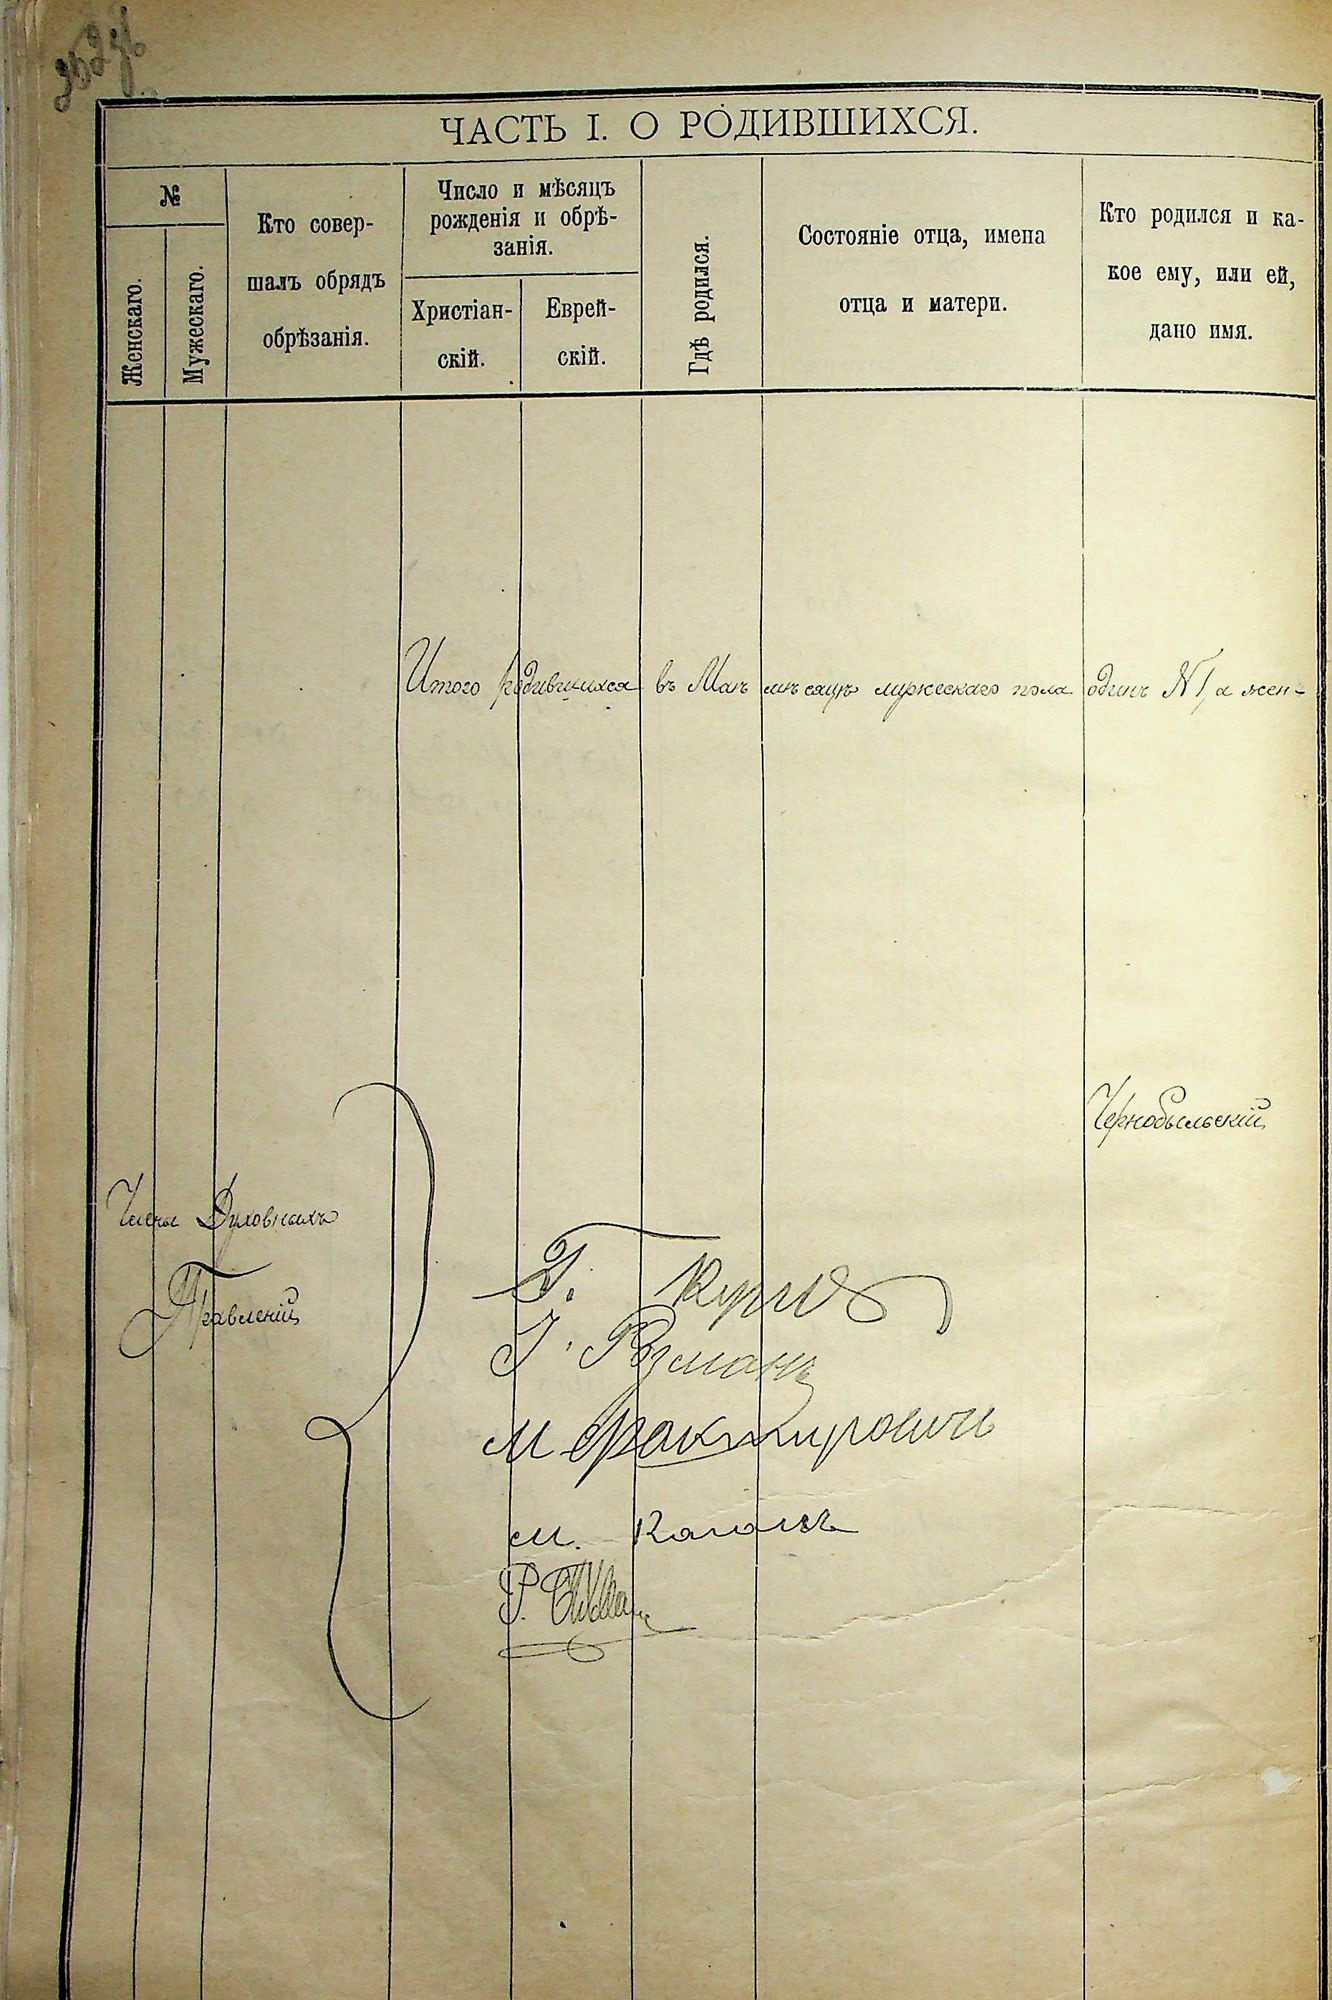 ЧАСТЬ I. О РОДИВШИХСЯ.
№
Женскаго.
Мужескаго.
Кто совер-
шалъ обрядъ
обрѣзанія.
Число и мѣсяцъ
рожденія и обрѣ-
занія.
Христіан-
скій.
Еврей-
скій.
Гдѣ родился.
Состояніе отца, имена
отца и матери.
Кто родился и ка-
кое ему, или ей,
дано имя.
Итого родившихся въ Маѣ мѣсяцѣ мужескаго пола одинъ №1, а жен-
Чернобыльскій
Члены Духовныхъ
Правленій
Г.
І. Розманъ
М
М. Каганъ
Р.